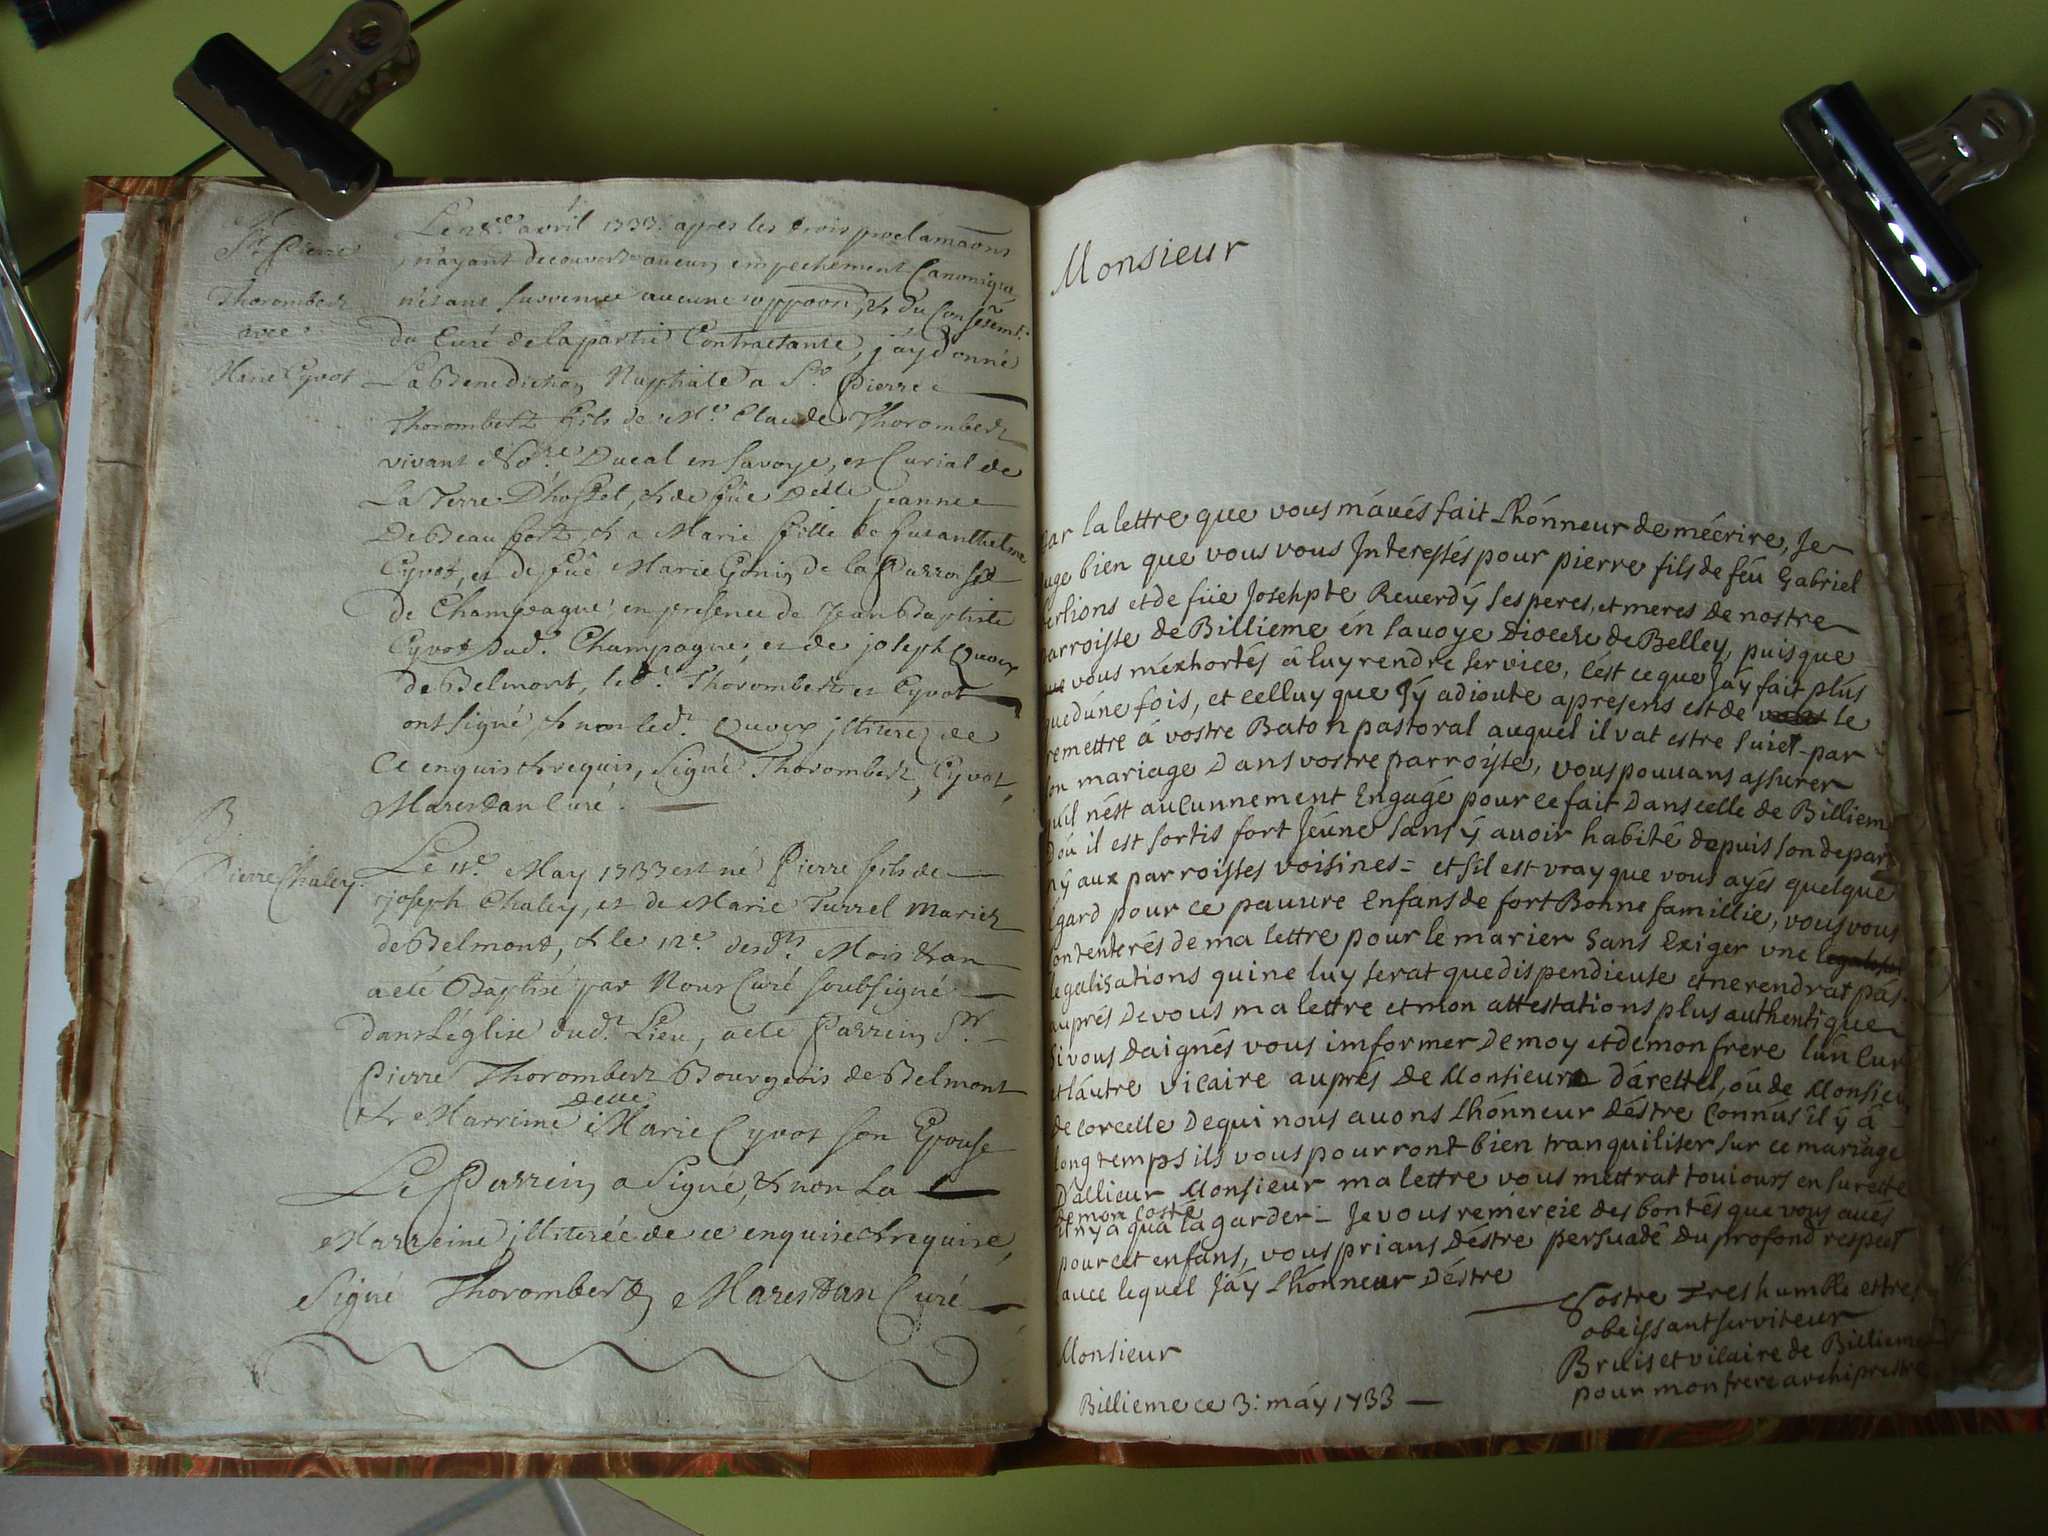 M
Sr. Pierre
Thorombert
avec
Marie Cyvot
avril 1733. apres les trois proclamãons
n'ayant decouvert aucun empechement Canonique
n'etant survenue aucune oppoõn, & du Consẽtemt.
du Curé de la partie Contractante, j'ay donné
La Benediction Nuptiale a Sr. Pierre
Thorombert fils de Me. Claude Thorombert
vivant Nore. Ducal en Savoye, et Curial de
La Terre D'hostel, & de fûe Delle jeanne
De Beaufort, & a Marie fille de fu anthelme
Cyvot, et de fûe Marie Gonin de la Parroisse
de Champagne: en presence de Jean Baptiste
Cyvot dud. Champagne, et de joseph Quoex
de Belmont, led. Thorombert et Cyvot
ont signé & non led. Quoex illiteré de
Ce enquis & requis, Signé Thorombert, Cyvot,
Marestan Curé.
B
Pierre Chaley.
Le 11e. May 1733 est né Pierre fils de
joseph Chaley, et de Marie Turrel Mariez
de Belmont, & le 12e. desdts. Mois & an
a eté Baptisé par Nous Curé soubsigné
dans L'église dudt. Lieu, a eté Parrein Sr.
Pierre Thorombert Bourgeois de Belmont
& Marreine Delle Marie Cyvot son Epouse
Le Parrein a Signé, & non La
Marreine illiterée de ce enquise & requise,
Signé Thorombert, Marestan Curé
Monsieur
Par la lettre que vous m'avés fait Lhónneur de mécrire, Je
juge bien que vous vous Interessés pour pierre fils de féu Gabriel
et de füe Josehpte Reverdÿ ses peres, et meres de nostre
parroisse de Billieme én Savoye Dioceze de Belley, puisque
vous méxhortés á luy rendre service, cést ce que Jáy fait plus
que dúne fois, et celluy que Jÿ adioute apresens est de le
remettre á vostre Baton pastoral auquel il vat estre suiet par
son mariage Dans vostre parroisse, vous pouvans assurer
quíl nést aucunnement Engagé pour ce fait Dans celle de Billieme
Dóu il est sortis fort Jeúne sans ÿ avoir habité depuis son depar
nÿ aux parroisses voisines = et sil est vray que vous ayés quelque
Egard pour ce pauvre Enfans de fort Bonne famillie, vous vous
contenterés de ma lettre pour le marier sans Exiger vne
legalisations qui ne luy serat que dispendieuse et ne rendrat pás
auprés De vous ma lettre et mon attestations plus authentique
Si vous Daignés vous imformer De moy et de mon frere lún Curé
et láutre vicaire auprés De Monsieur Dárettel, óu de Monsieur
de Corcelle De qui nous avons Lhónneur Déstre Connus íl ÿ á
long temps ils vous pourront bien tranquiliser sur ce mariage
D'allieur Monsieur ma lettre vous mettrat toujours en surette
de mon costé
il n'y a quá lá garder = Je vous remercie des bontés que vous aves
pour cet enfans, vous prians Déstre persuadé Du profond respect
avec lequel Jáy Lhónneur Déstre
Vostre Tres humble et tres
obeissant serviteur
Monsieur
Brulis et vicaire de Billieme
pour mon frere archiprestre
Billieme ce 3: máy 1733